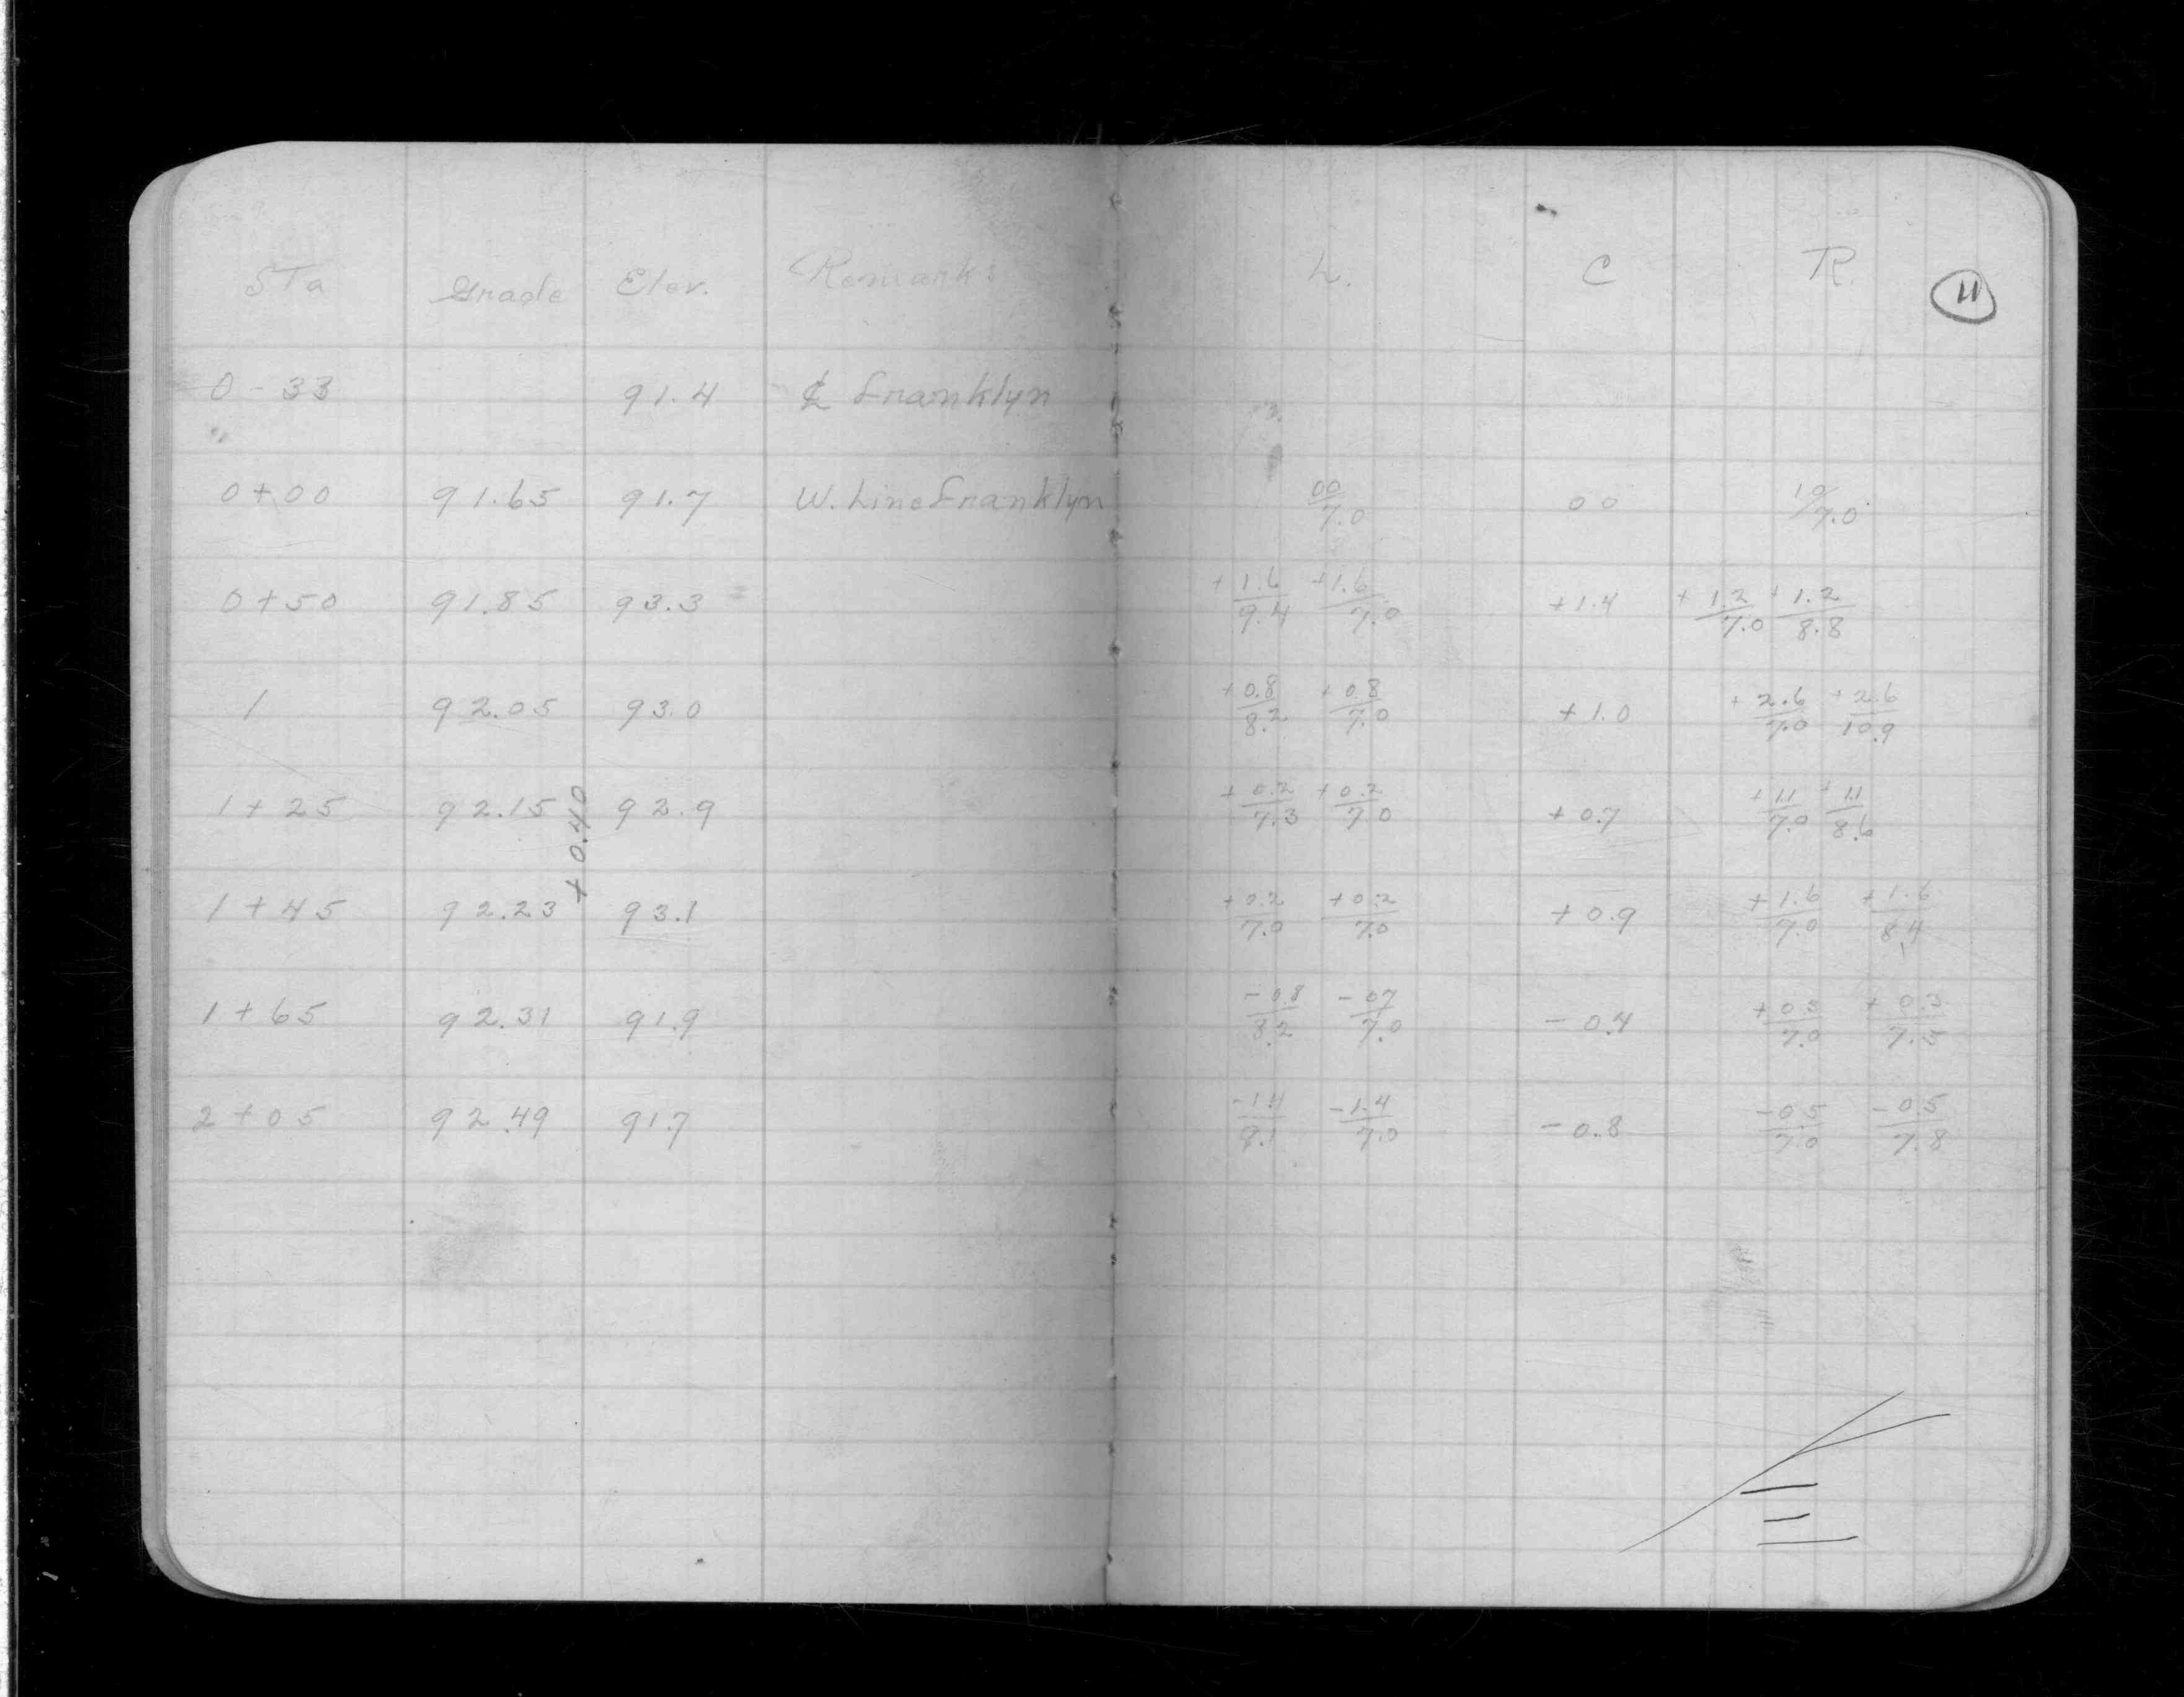 STa Grade Elev. Remarks L. C R. 11
0 - 33 91.4 ℄ Franklyn
0+00 91.65 91.7 W. Line Franklyn 00/7.0 00 10/7.0
0+50 91.85 93.3 +1.6/9.4 +1.6/7.0 +1.4 +1.2/7.0 +1.2/8.8
1 92.05 93.0 +0.8/8.2 +0.8/7.0 +1.0 +2.6/7.0 +2.6/10.9
1+25 92.15 92.9 +0.2/7.3 +0.2/7.0 +0.7 +1.1/7.0 +1.1/8.6
+0.40
1+45 92.23 93.1 +0.2/7.0 +0.2/7.0 +0.9 +1.6/7.0 +1.6/8.4
1+65 92.31 91.9 -0.8/8.2 -07/7.0 -0.4 +0.3/7.0 +0.3/7.5
2+05 92.49 91.7 -1.4/9.1 -1.4/7.0 -0.8 -0.5/7.0 -0.5/7.8